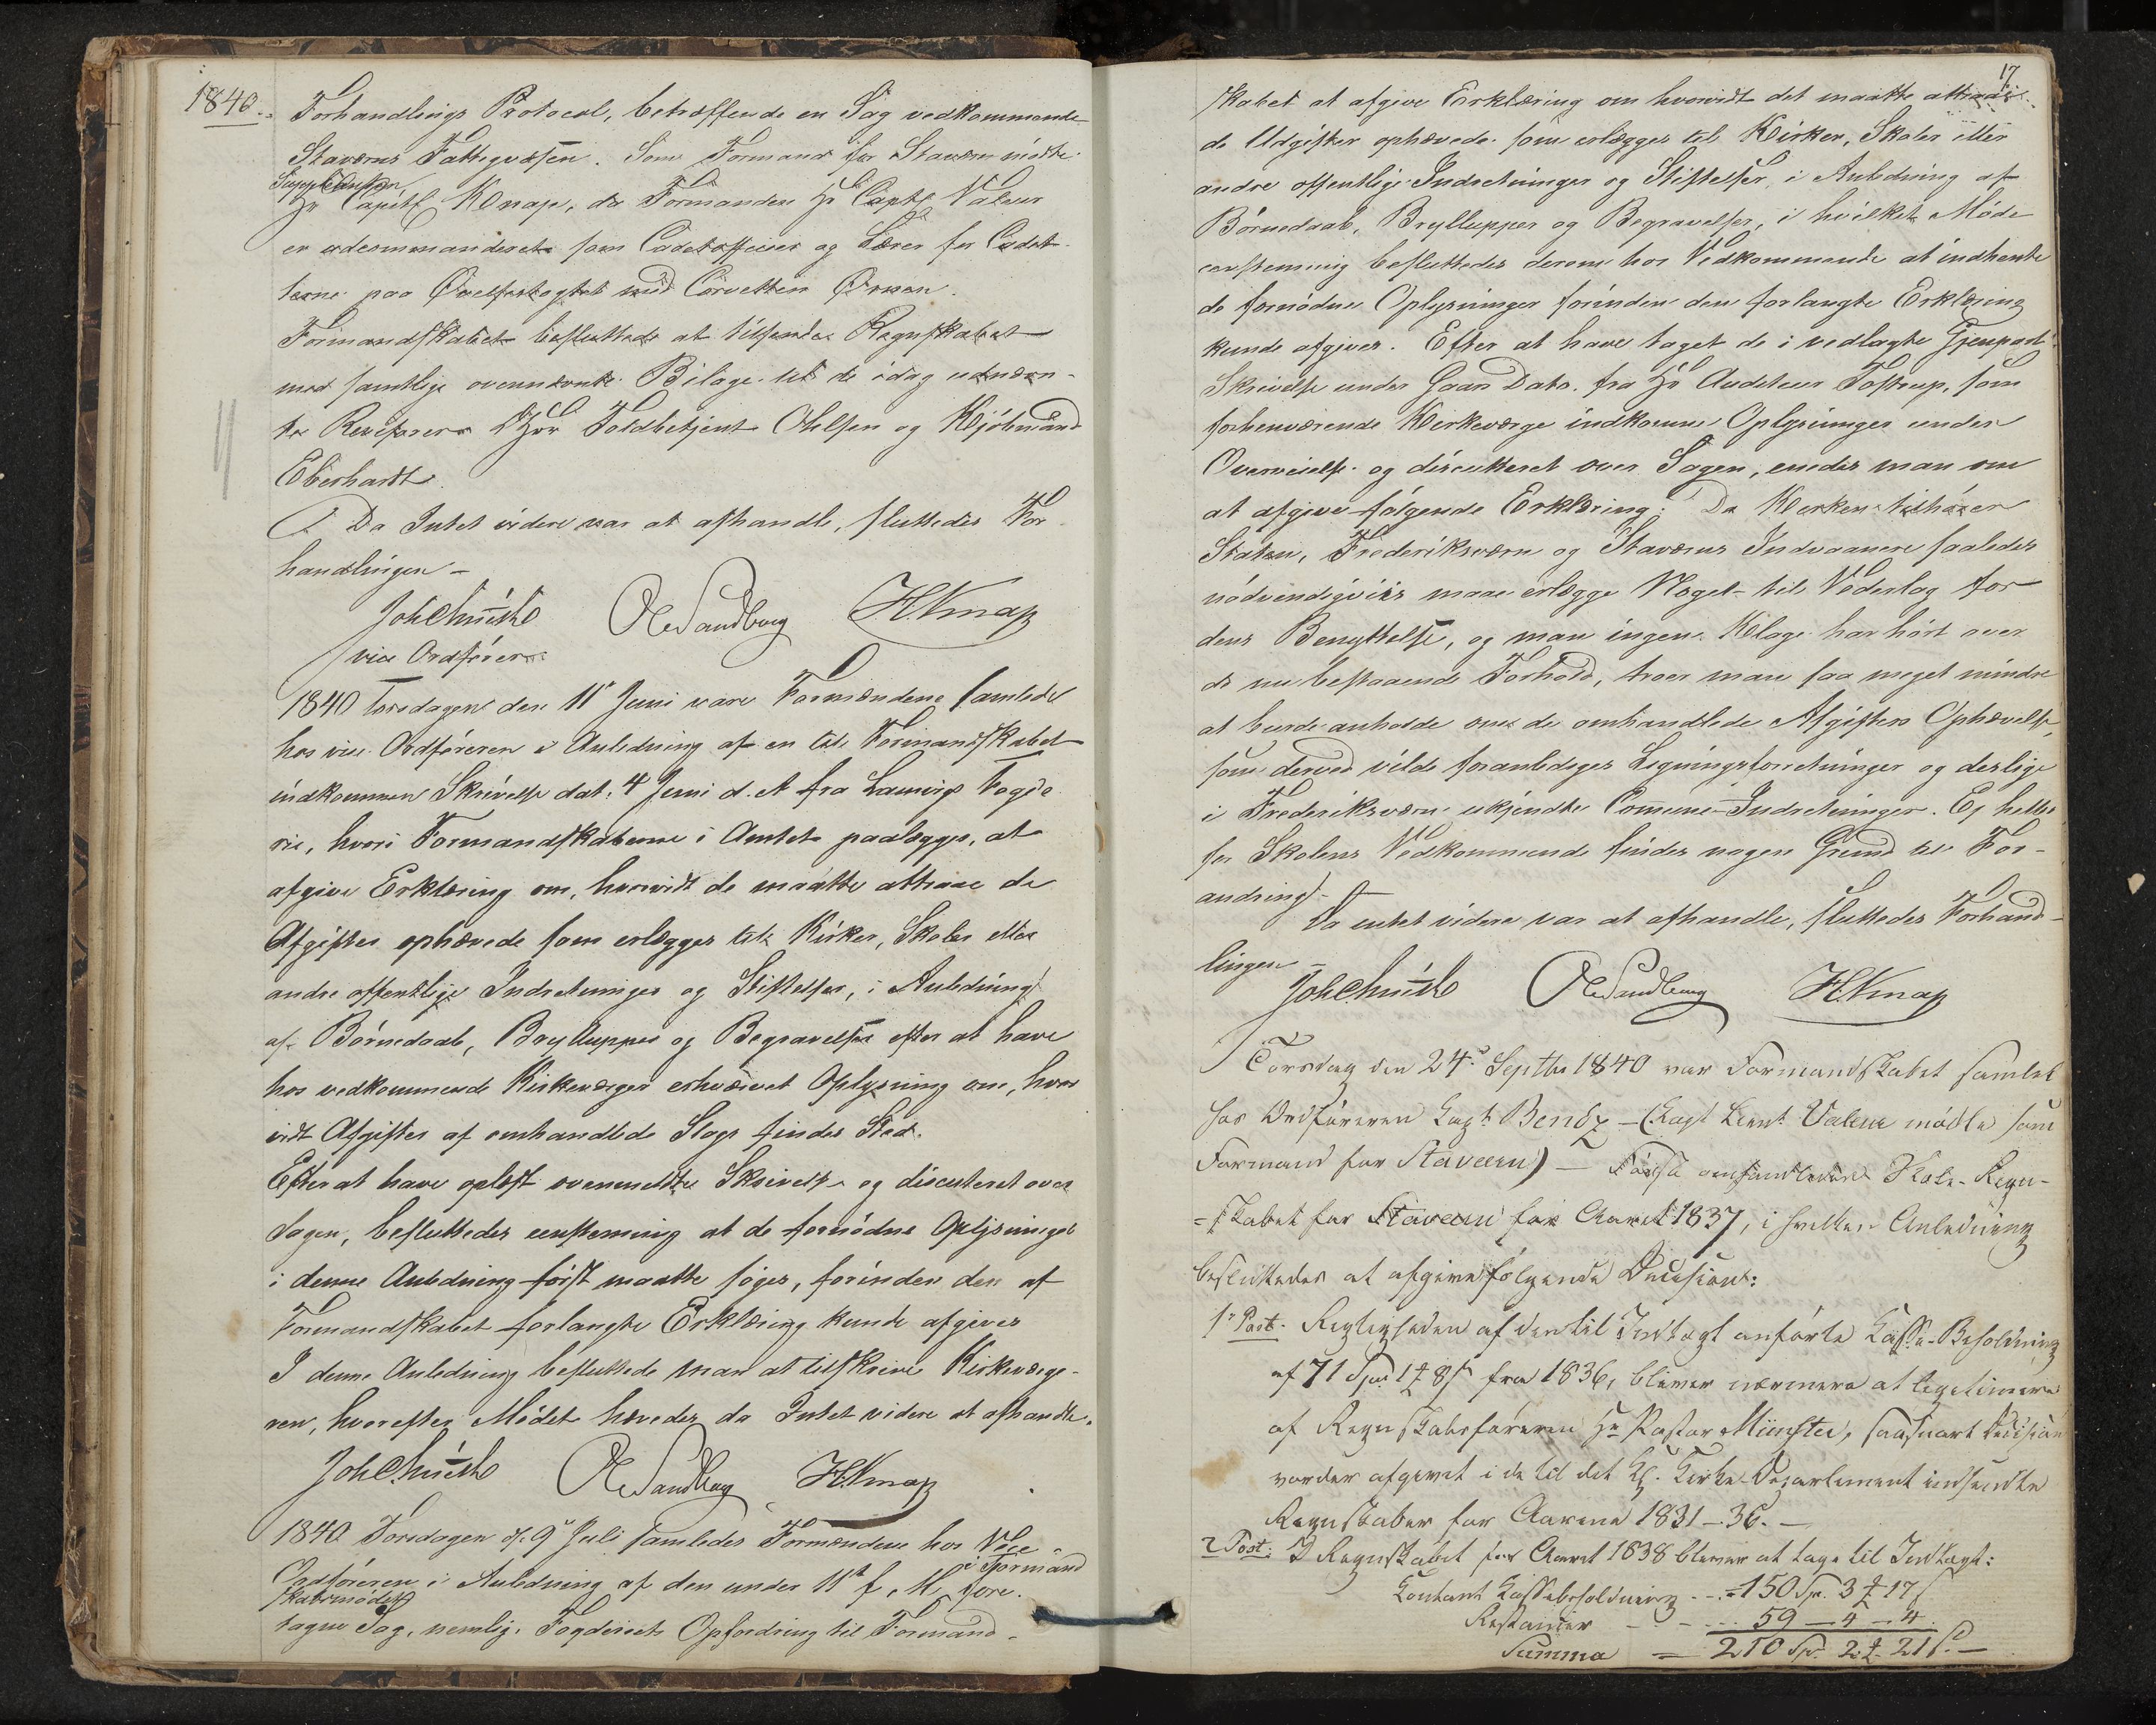 1840.
Forhandlings Protocol, betræffende en Sag vedkommende
Staværns Fattigvæsen. Som Formand for Staværn mødte
Suppleanten
Hr Capitl Knap, da Formanden Hr Captl Valeur
er udcommanderet som Cadetofficeer og Lærer for Cadet-
terne paa Øvelsestogtet med Corvetten Ørnen.
Formandskabet besluttede at tilsende Regnskabet
med samtlige ovennævnte Bilage til de idag udnævn-
te Revisorer DHrr Toldbetjent Olelsen og Kjöbmand
Eberhardt.
Da Intet videre var at afhandle, sluttedes For-
handlingen –
Joh Chmish O Sandberg H. Knap
vice Ordförer
1840 Torsdagen den 11te Juni vare Formændene samlede
hos vice Ordföreren i Anledning af en til Formandskabet
indkommen Skrivelse dat. 4 Juni d. A fra Laurvigs Fogde-
rie, hvori Formandskaberne i Amtet paalægges, at
afgive Erklæring om, hvorvidt de maatte attraae de
Afgifter ophævede som erlægges til Kirker, Skoler eller
andre offentlige Indretninger og Stiftelser, i Anledning
af Börnedaab, Brylluppes og Begravelser efter at have
hos vedkommende Kirkeværger erhvervet Oplysning om, hvor
vidt Afgifter af omhandlede Slags finder Sted.
Efter at have oplæst ovenmeldte Skrivelse og discuteret over
Sagen, besluttedes eenstemmig at de fornödne Oplysninger
i denne Anledning först maatte söges, forinden den af
Formandskabet forlangte Erklæring kunde afgives
I denne Anledning besluttede man at tilskrive Kirkeværge-
ren, hvorefter Mödet hævedes da Intet videre at afhandle.
Joh Chmish O Sandberg H. Knap
1840 Torsdagen d. 9de Juli samledes Formændene hos Vice-
Ordföreren i Anledning af den under 11te f. M. i Formand
skabsmödet fore-
tagne Sag, nemlig: Fogderiets Opfordring til Formand-
17
skabet at afgive Erklæring om hvorvidt det maatte attraae
de Udgifter ophævede som erlægges til Kirker, Skoler eller
andre offentlige Indretninger og Stiftelser, i Anledning af
Börnedaab, Brylluppes og Begravelser, i hvilket Möde
eenstemmig besluttedes derom hos Vedkommende at indhente
de fornödne Oplysninger forinden den forlangte Erklæring
kunde afgives. Efter at have taget de i vedlagte Gjenpart
Skrivelse under Gaars Dato fra Hr Auditeur Tostrup, som
forhenværende Kirkeværge indkomne Oplysninger under
Overveielse og discuteret over Sagen, enedes man om
at afgive fölgende Erklæring: Da Kirken tilhörer
Staten, Frederiksværn og Staværns Indvaanere saaledes
nödvendigviis maae erlægge Noget til Vederlag for
dens Benyttelse, og man ingen Klage har hört over
de nu bestaaende Forhold, troer man saa meget mindre
at burde anholde om de omhandlede Afgifters Ophævelse,
som derved vilde foranlediges Ligningsforretninger og deslige
i Frederiksværn ukjendte Comune-Indretninger. Ej heller
for Skolens Vedkommende findes nogen Grund til For-
andring. –
Da intet videre var at afhandle, sluttedes Forhand-
lingen –
Joh Chmish O Sandberg H. Knap
Torsdag den 24de Septbr 1840 var Formandskabet samlet
hos Ordföreren Capt: Bentz – (Capt Lieut Valeur mödte som
Formand for Stavern) – omhandledes Skole-Regn-
=skabet for Stavern for Aaret 1837, i hvilken Anledning
besluttedes at afgive fölgende Decision:
1te Post. Rigtigheden af den til Indtægt anförte Casse-Beholdning
af 71 Spd 1 ₰ 8 s fra 1836, bliver nærmere at legitimere
af Regnskabsföreren Hr Pastor Münster, saasnart Decision
vorder afgivet i de til det Kgl. Kirke-Departement indsendte
Regnskaber for Aarene 1831–36. –
2 Post: I Regnskabet for Aaret 1838 bliver at tage til Indtægt:
Contant Cassebeholdning - - = 150 Sp. 3 ₰ 17 s
Restancer - - - 59 – 4 – 4.
Summa = 210 Sp. 2 ₰ 21 s. –